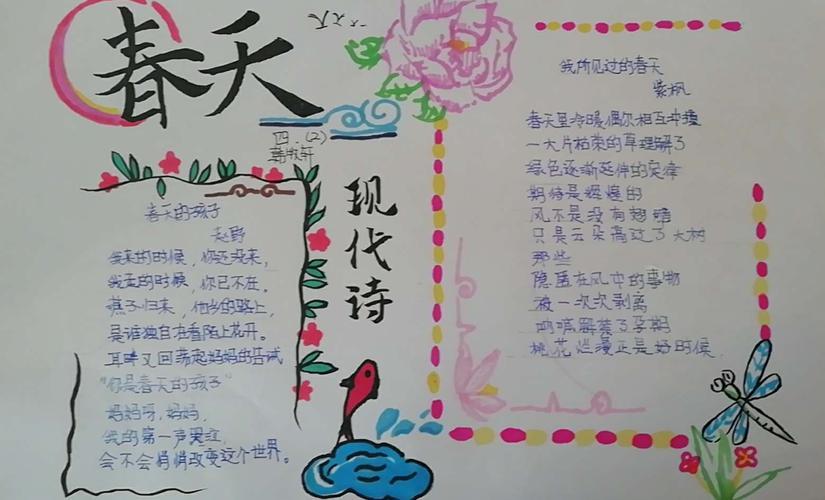 春天
四.(2)
现代诗
春天的孩子
赵野
我来的时候，你还没来，
我走的时候，你已不在。
燕子归来，他乡的路上，
是谁独自在看陌上花开。
耳畔又回荡起妈妈的告诫
"你是春天的孩子"
妈妈呀，妈妈，
我的第一声哭泣，
会不会悄悄改变这个世界。
我所见过的春天
紫枫
春天里冷暖偶尔相互冲撞
一大片枯荣的草理解了
绿色逐渐延伸的定律
期待是辉煌的
风不是没有翅膀
只是云朵高过了大树
那些
隐匿在风中的事物
被一次次剥离
呐喊解禁了孕期
桃花烂漫正是好时候